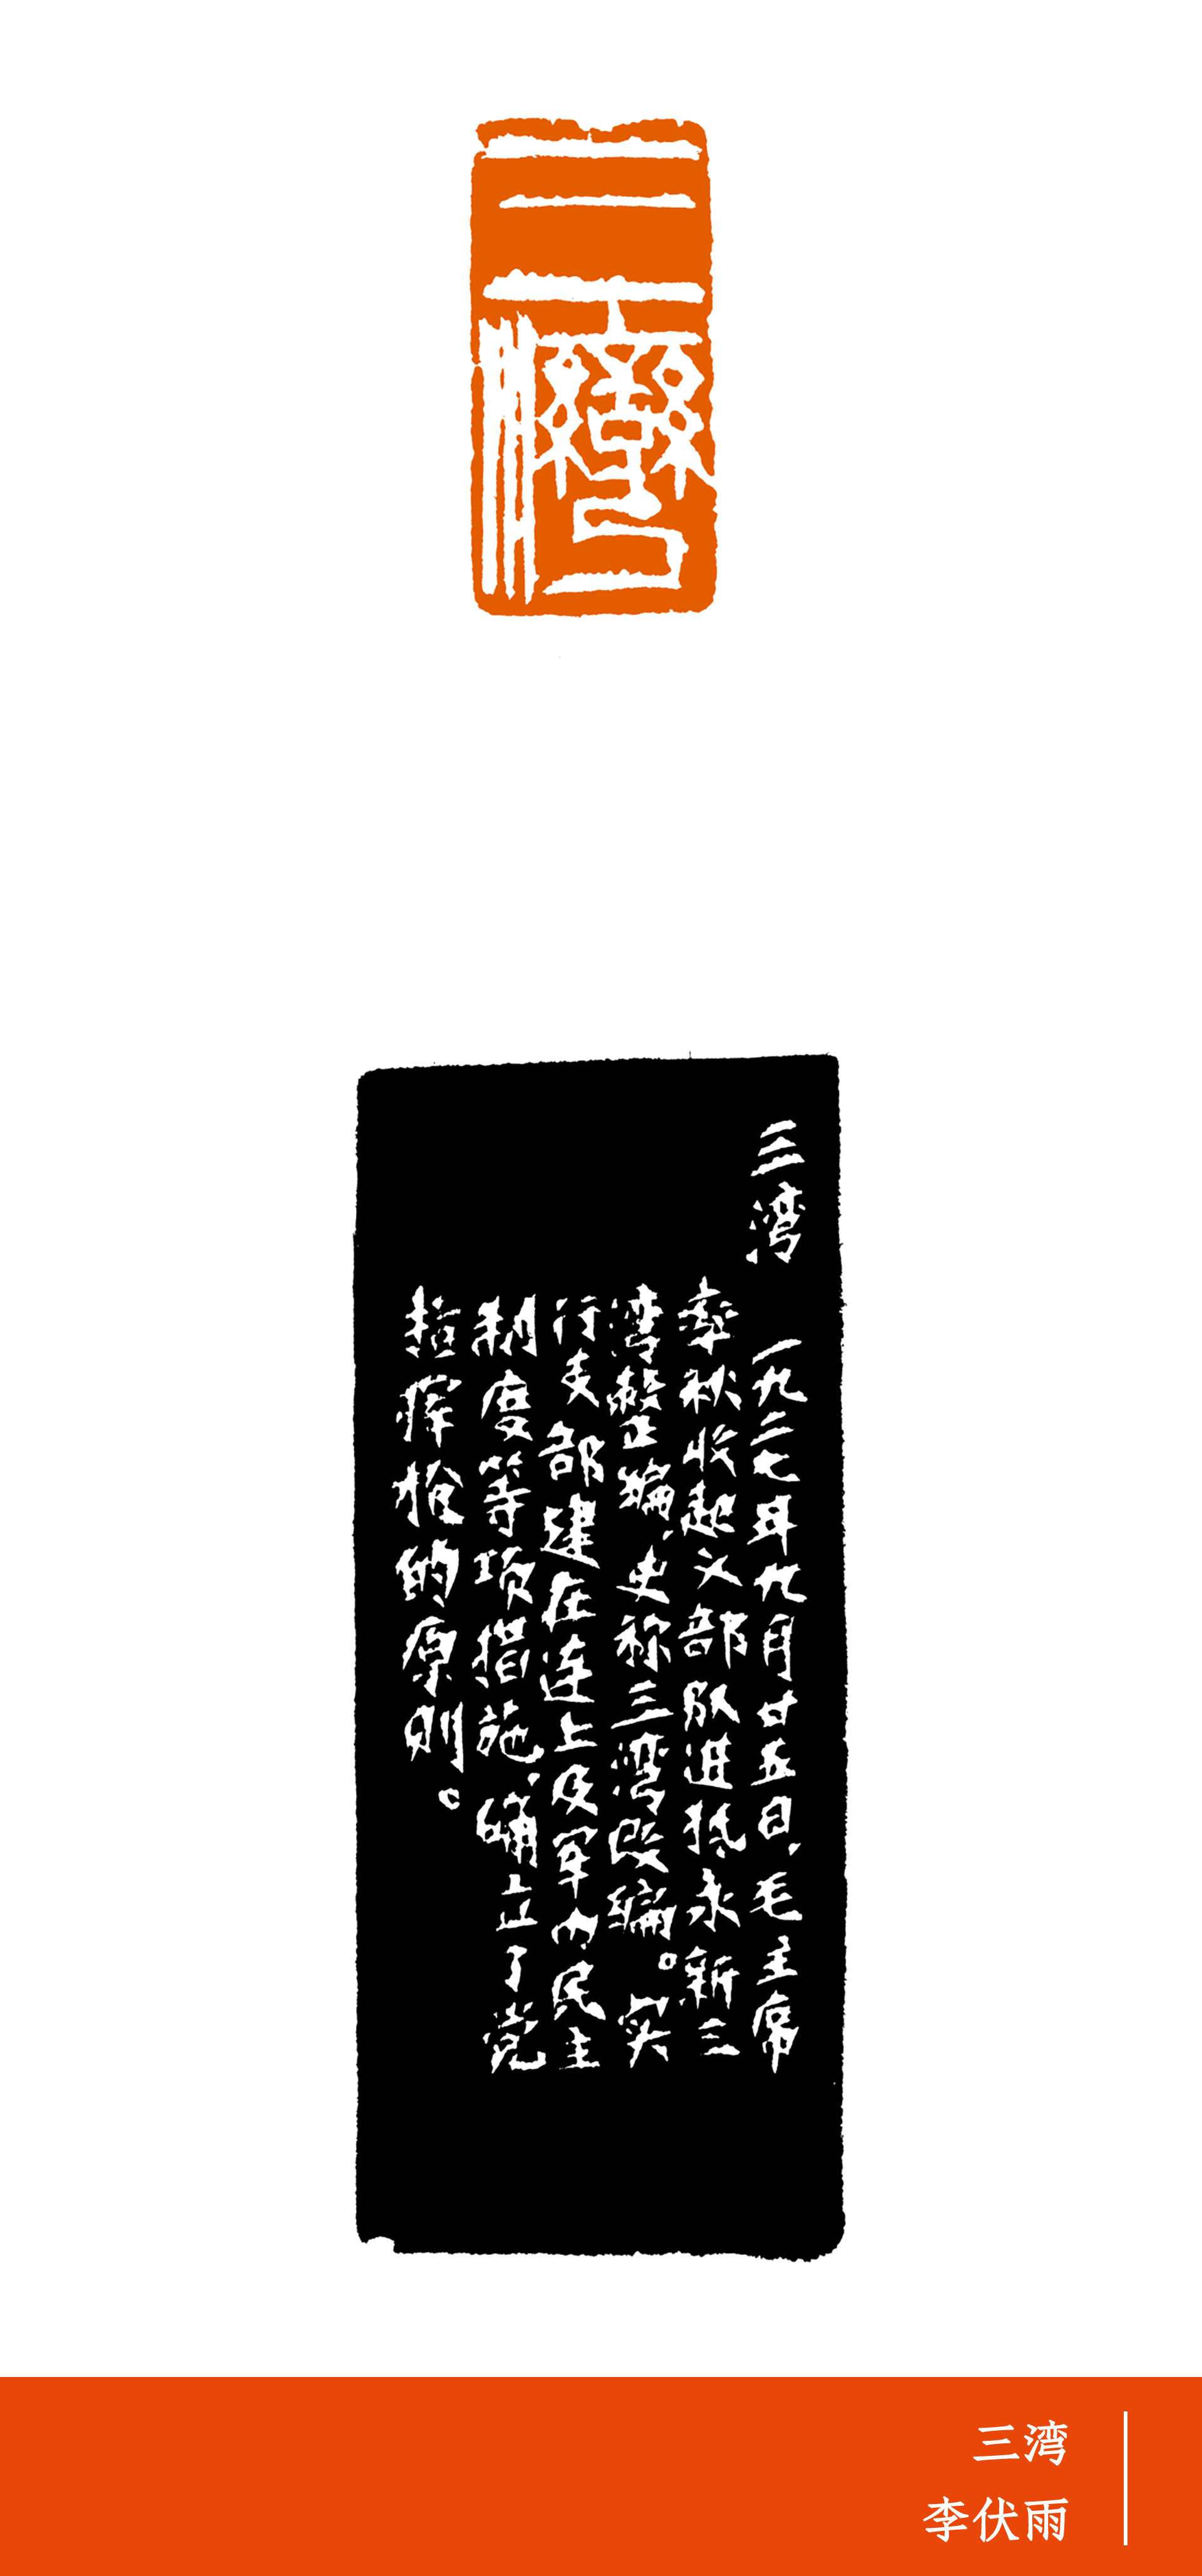 三灣
三湾
一九二七年九月廿五日，毛主席
率秋收起义部队进抵永新三
湾整编，史称三湾改编。实
行支部建在连上及军内民主
制度等项措施，确立了党
指挥枪的原则。
三湾
李伏雨